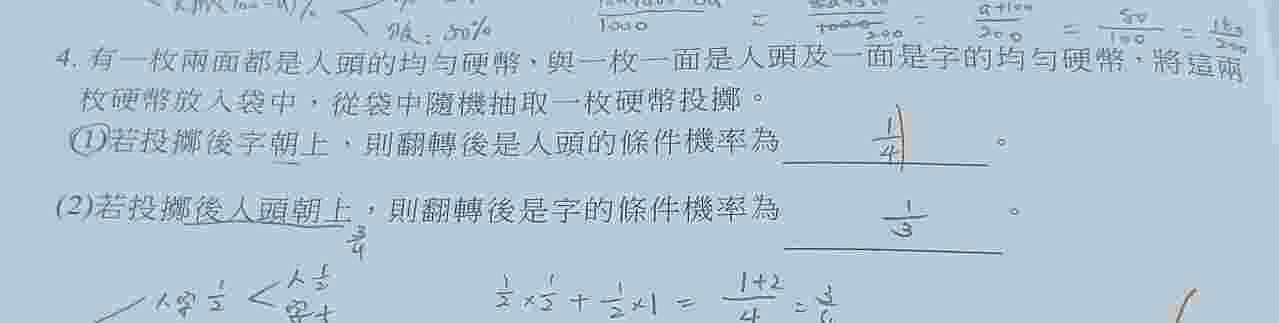 1000 = 1000 200 = a+100 200 = 50 100 = 150 200
敗: 50%
4. 有一枚兩面都是人頭的均勻硬幣、與一枚一面是人頭及一面是字的均勻硬幣，將這兩
枚硬幣放入袋中，從袋中隨機抽取一枚硬幣投擲。
(1)若投擲後字朝上，則翻轉後是人頭的條件機率為 1/4 。
(2)若投擲後人頭朝上，則翻轉後是字的條件機率為 1/3 。
3/4
人字 1/2 < 人 1/2
字 1/2 × 1/2 + 1/2 × 1 = 1+2/4 = 3